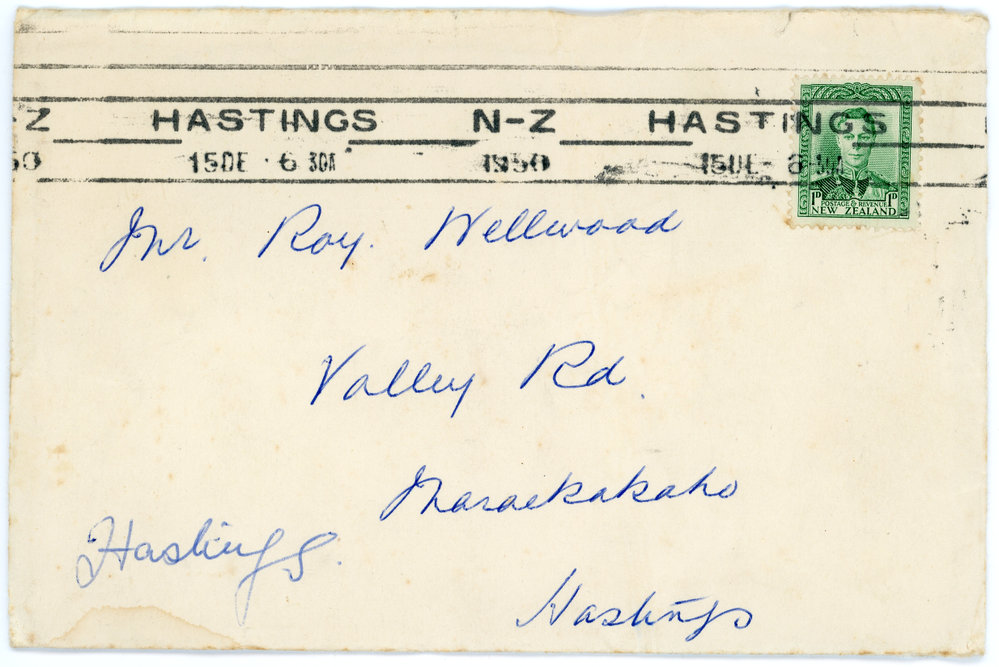 -Z HASTINGS N-Z HASTINGS
50 15DE · 6 30A 1950 15DE
1D POSTAGE & REVENUE 1D
NEW ZEALAND
Mr. Roy. Wellwood
Valley Rd.
Maraekakaho
Hastings.
Hastings